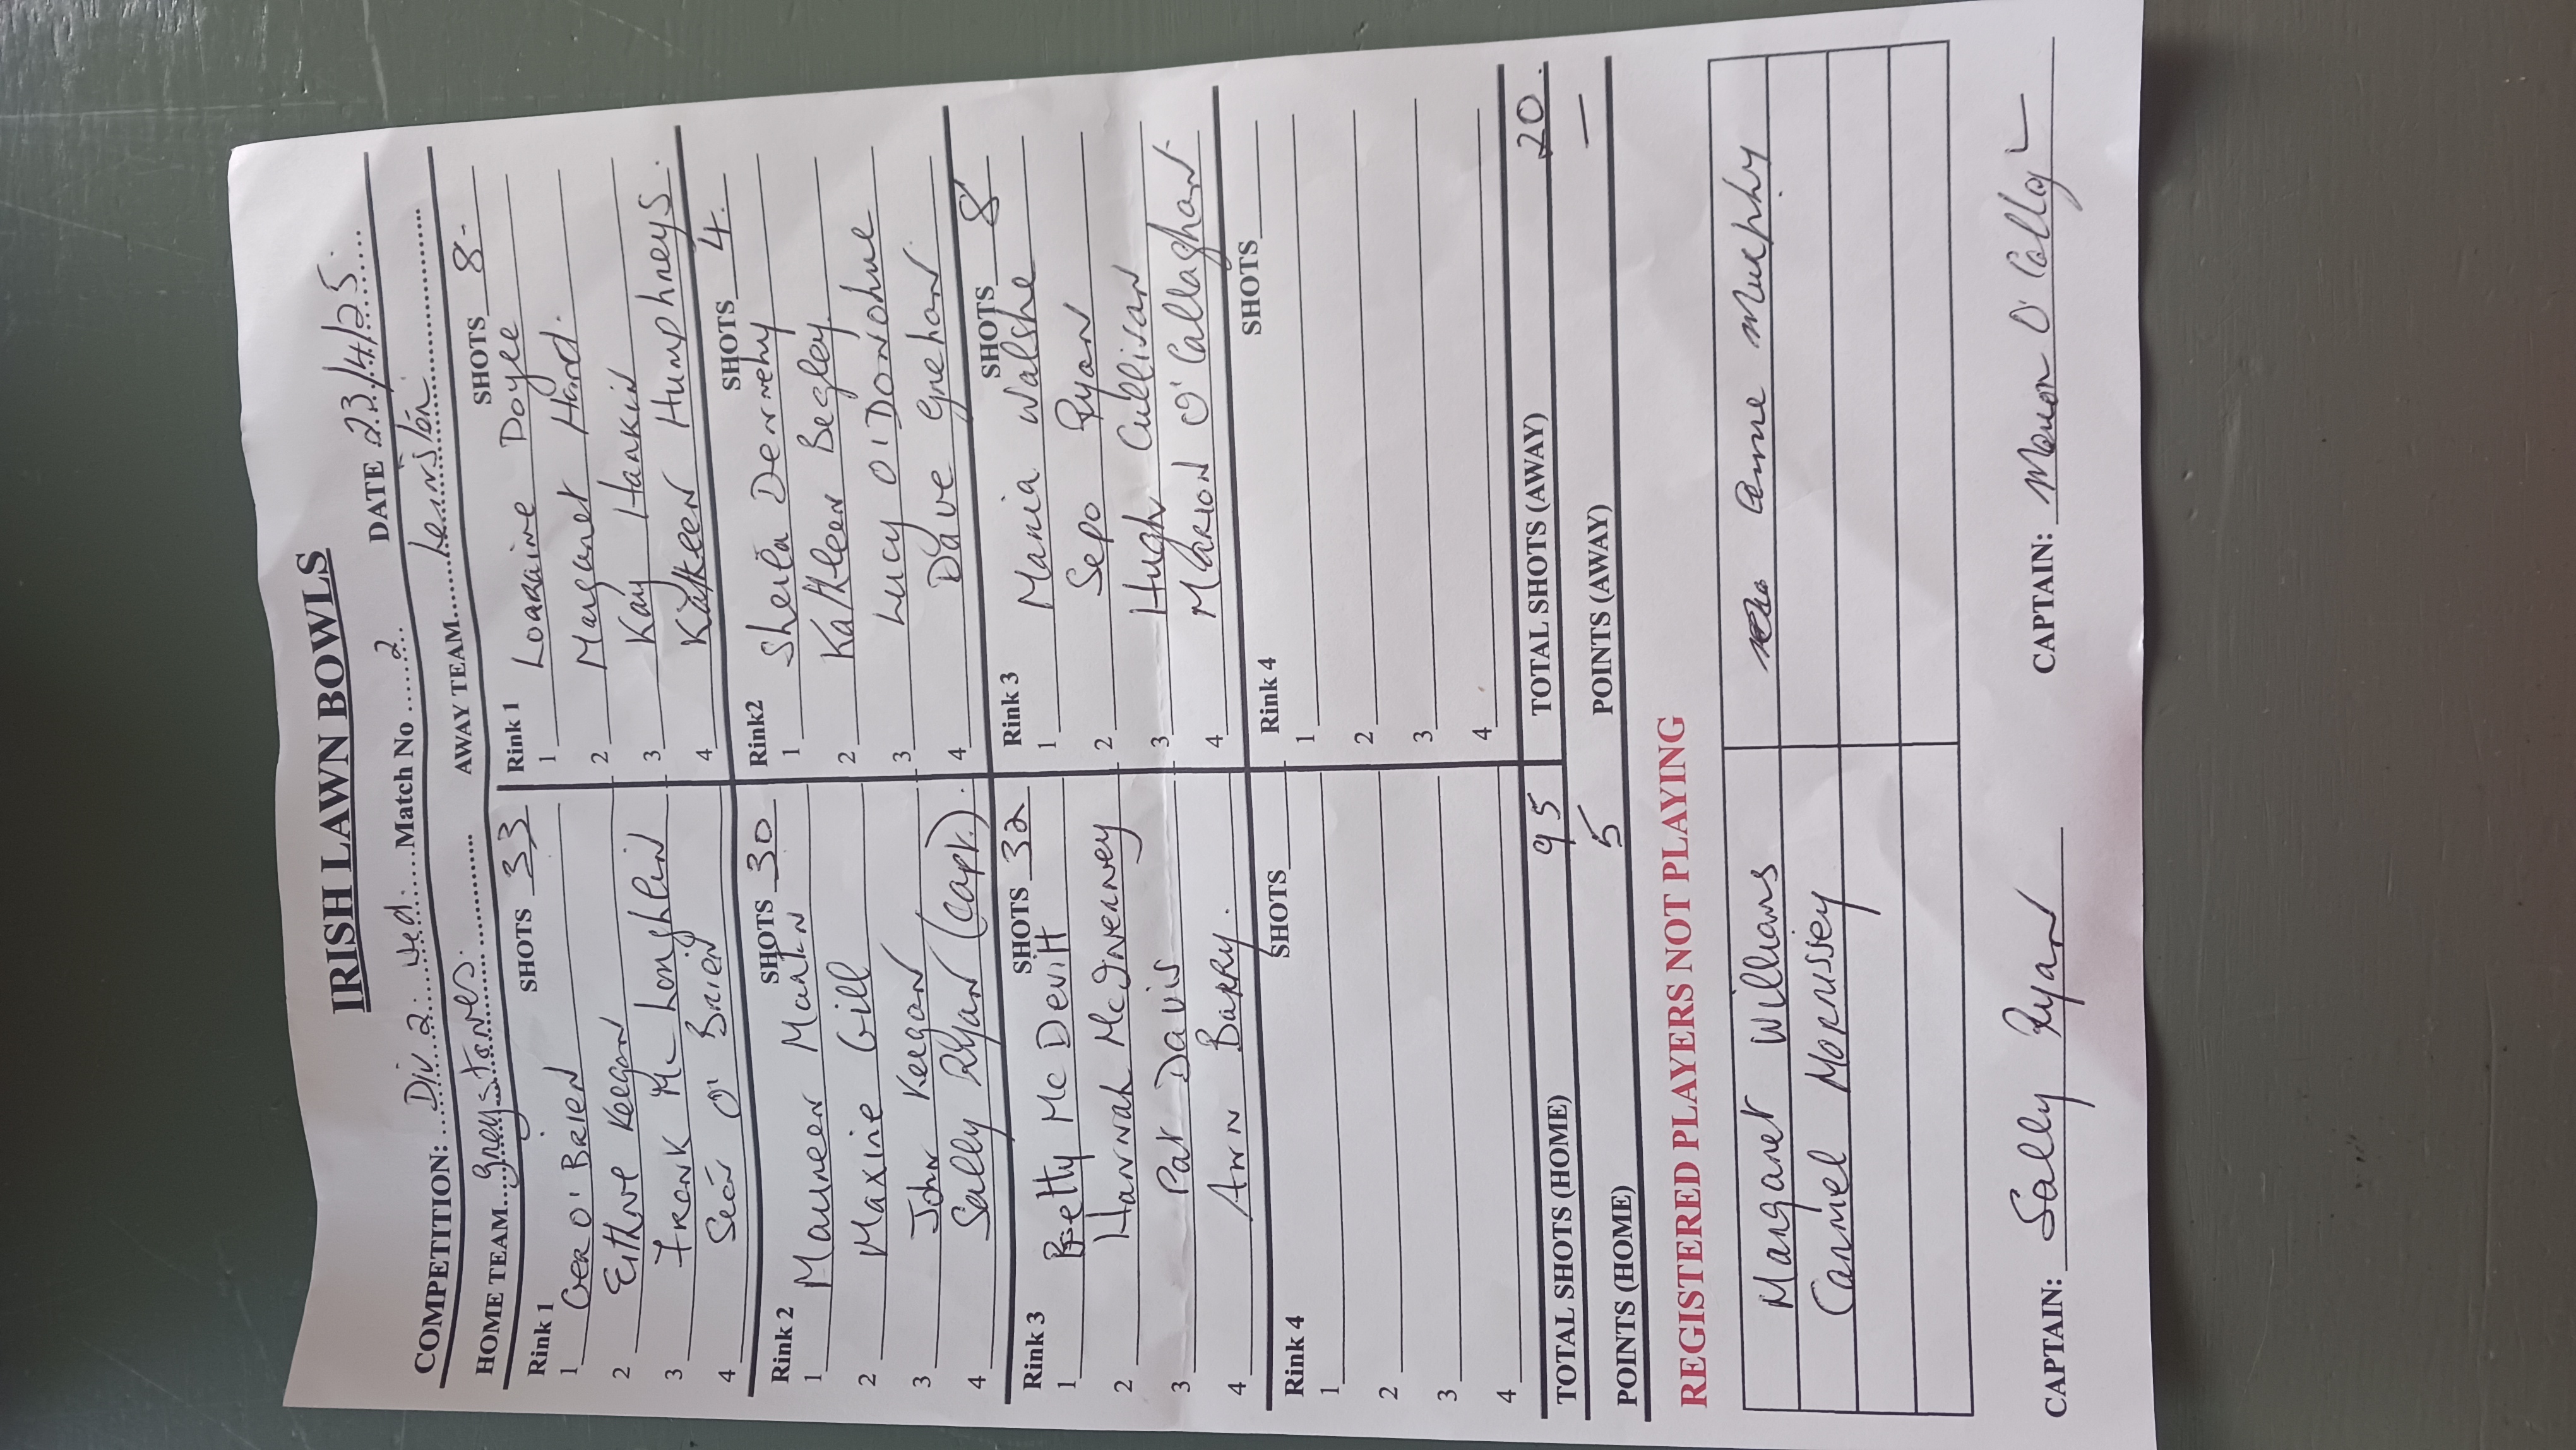 IRISH LAWN BOWLS
COMPETITION: Div 2. Wed. Match No 2 DATE 23/4/25.
HOME TEAM Greystones. AWAY TEAM Leinster
Rink 1 SHOTS 33 Rink 1 SHOTS 8-
1 Ger O'Brien 1 Loaraine Doyle
2 Eithne Keegan 2 Margaret Hand.
3 Frank McLoughlin 3 Kay Hankin
4 Seán O'Brien 4 Kathleen Humphreys.
Rink 2 SHOTS 30 Rink2 SHOTS 4.
1 Maureen Martin 1 Sheila Dennehy
2 Maxine Gill 2 Kathleen Begley
3 John Keegan 3 Lucy O'Donohue
4 Sally Ryan (Capt.). 4 Dave Grehan
Rink 3 SHOTS 32 Rink 3 SHOTS 8
1 Betty McDevitt 1 Maria Walshe
2 Hannah McInerney 2 Ryan
3 Pat Davis 3 Hugh Cullivan
4 Ann Barry. 4 Marion O'Callaghan
Rink 4 SHOTS Rink 4 SHOTS
1 1
2 2
3 3
4 4
TOTAL SHOTS (HOME) 95 TOTAL SHOTS (AWAY) 20.
POINTS (HOME) 5 POINTS (AWAY) —
REGISTERED PLAYERS NOT PLAYING
Margaret Williams Anne Murphy
Carmel Morrissey
CAPTAIN: Sally Ryan CAPTAIN: Marion O'Callag